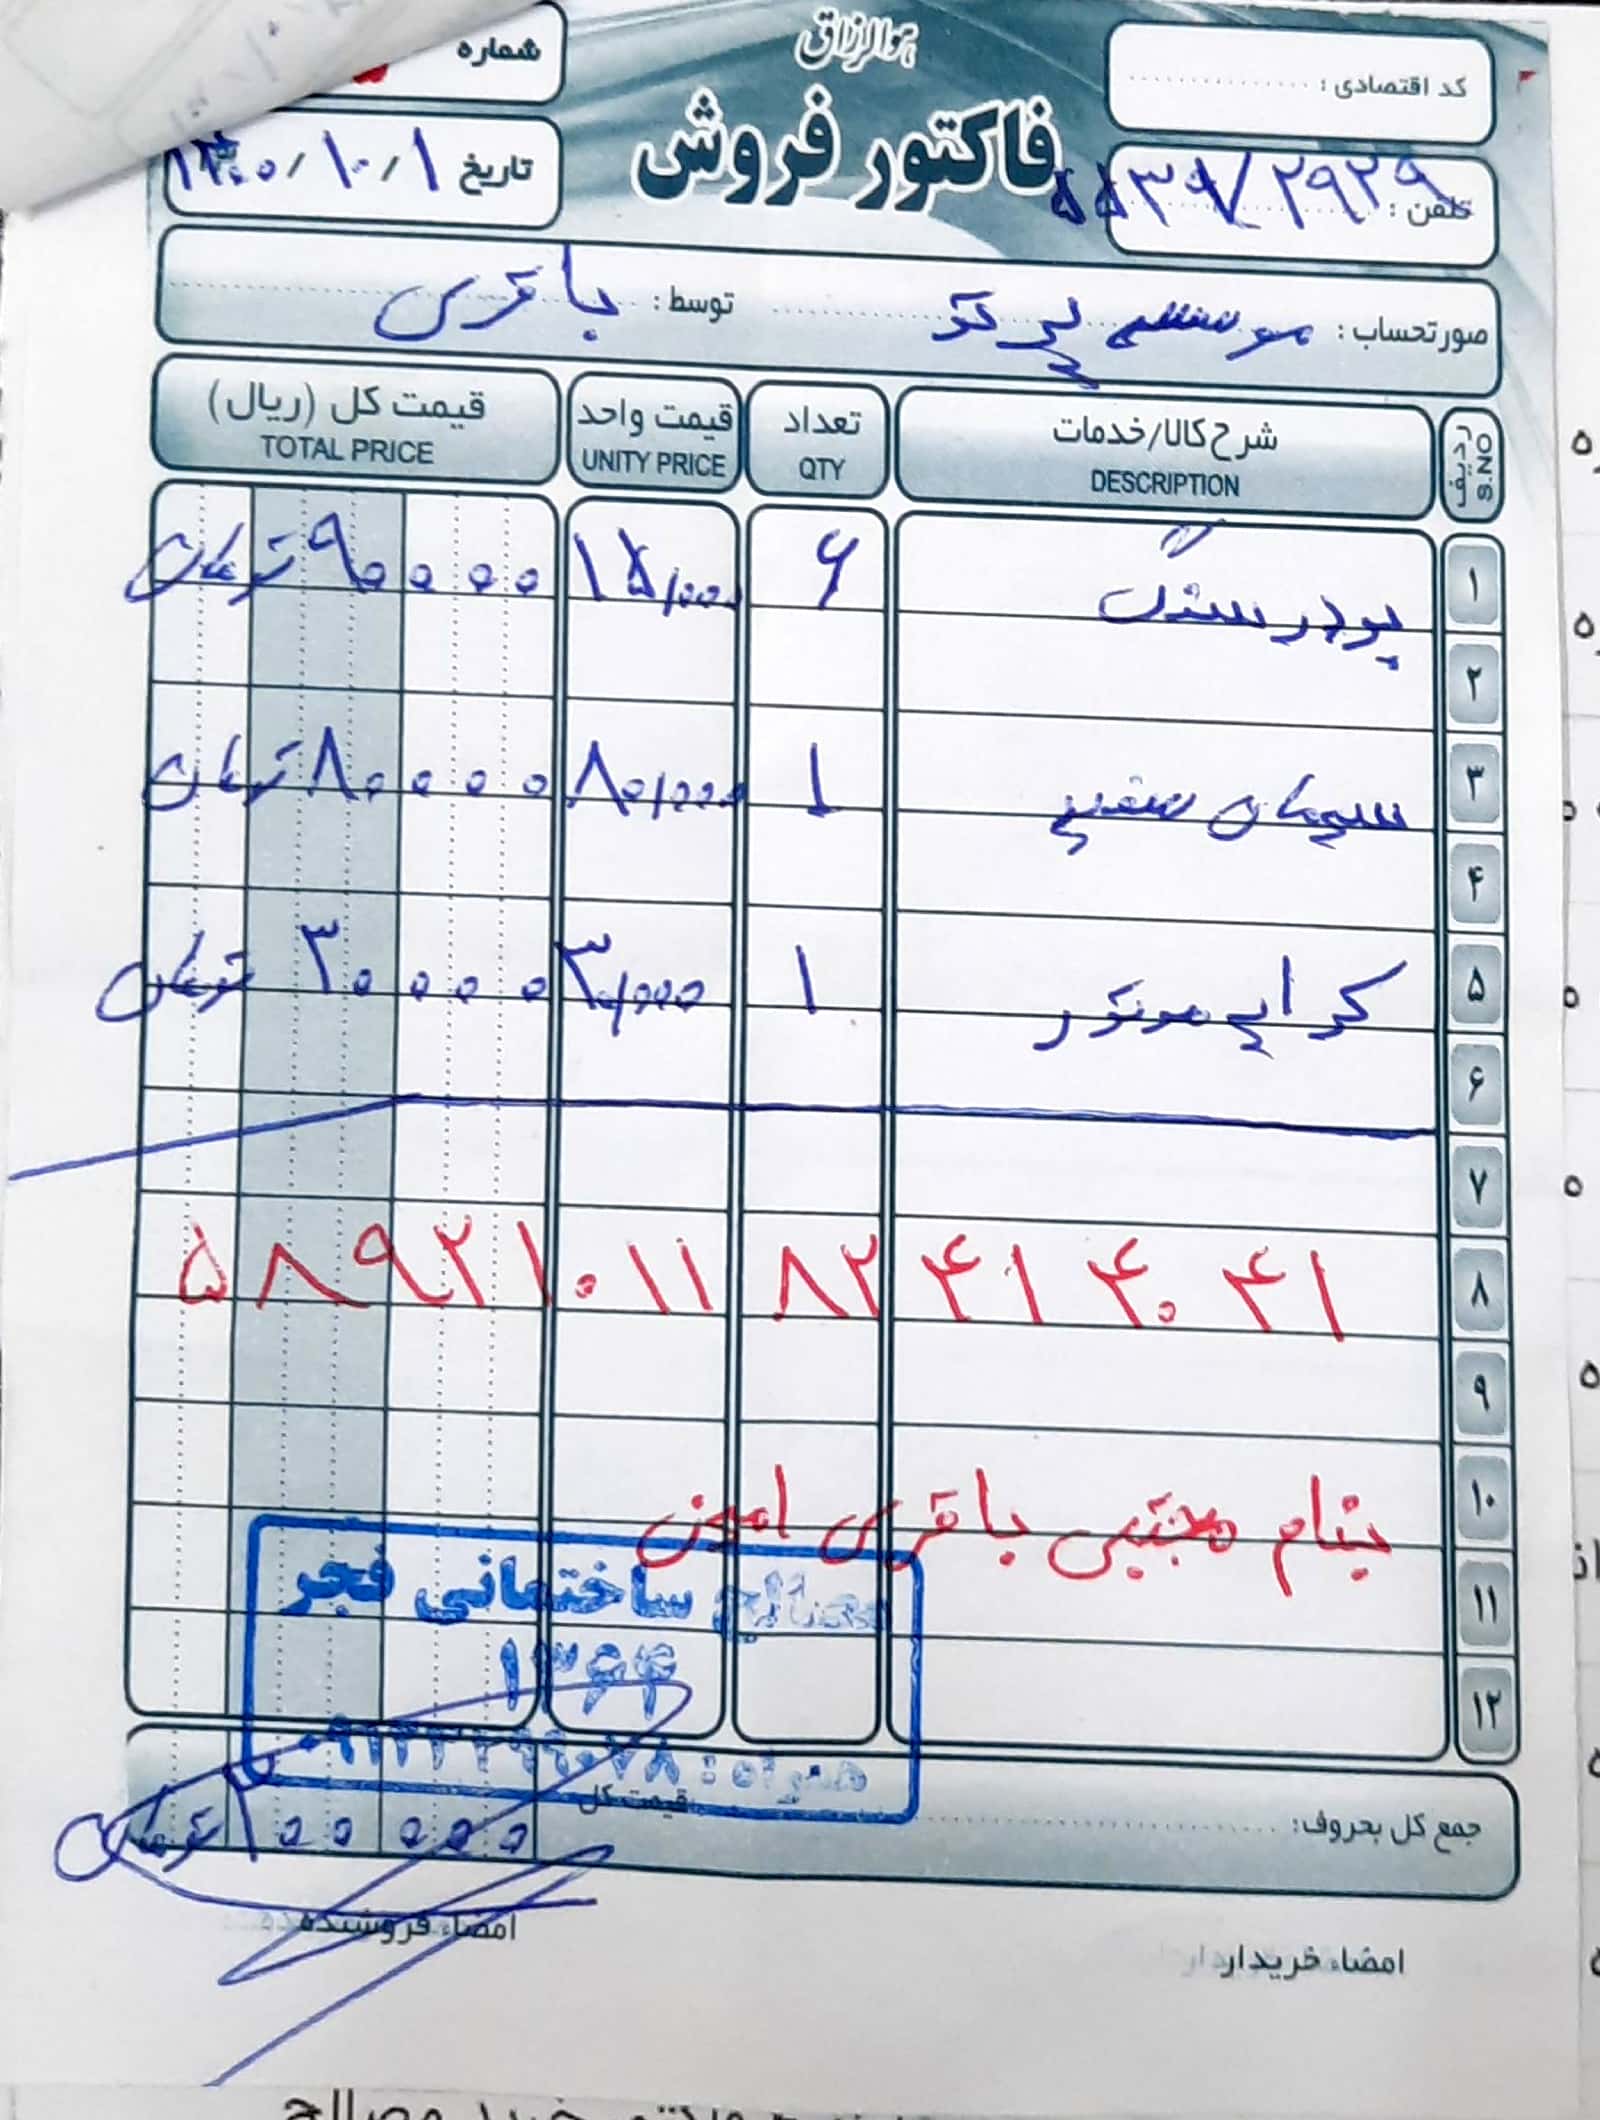 هوالرزاق
فاکتور فروش
کد اقتصادی :
شماره
تلفن : ۵۵۳۹۱/۲۹۲۹
تاریخ ۱۴۰۰/۱۰/۱
صورتحساب : موسسه پرتو توسط : باقری
ردیف شرح کالا/خدمات تعداد قیمت واحد قیمت کل (ریال)
S.NO DESCRIPTION QTY UNITY PRICE TOTAL PRICE
۱ پودر سنگ ۶ ۱۵/۰۰۰ ۹۰۰۰۰ تومان
۲
۳ سیمان سفید ۱ ۸۰/۰۰۰ ۸۰۰۰۰ تومان
۴
۵ کرایه موتور ۱ ۳۰/۰۰۰ ۳۰۰۰۰ تومان
۶
۷
۸ ۵۸۹۲۱۰۱۱۸۲۴۱۴۰۴۱
۹
۱۰ بنام مجتبی باقری امین
۱۱ مصالح ساختمانی فجر
۱۳۶۴
۱۲
همراه :
جمع کل بحروف: قیمت کل ۲۰۰۰۰۰ تومان
امضاء خریدار
امضاء فروشنده